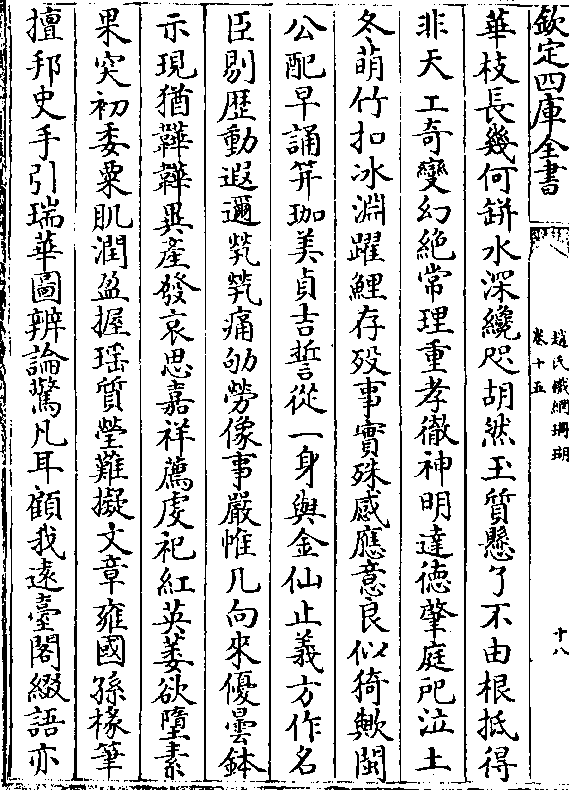 欽定四庫全書
趙氏鐵網珊瑚
卷十五
十八
華枝長幾何缾水深纔咫胡然玉質懸了不由根抵得
非天工奇變幻絶常理重孝徹神明達徳肇庭戺泣土
冬萌竹扣冰淵躍鯉存殁事實殊感應意良似猗歟閩
公配早誦笄珈美貞吉誓從一身與金仙止義方作名
臣剔歴動遐邇煢煢痛劬勞像事嚴帷几向來優曇鉢
示現猶韡韡異產發哀思嘉祥薦虔祀紅英萎欲墮素
果突初委粟肌潤盈握瑶質瑩難擬文章雍國孫椽筆
擅邦史手引瑞華圖辨論驚凡耳顧我逺臺閣綴語亦